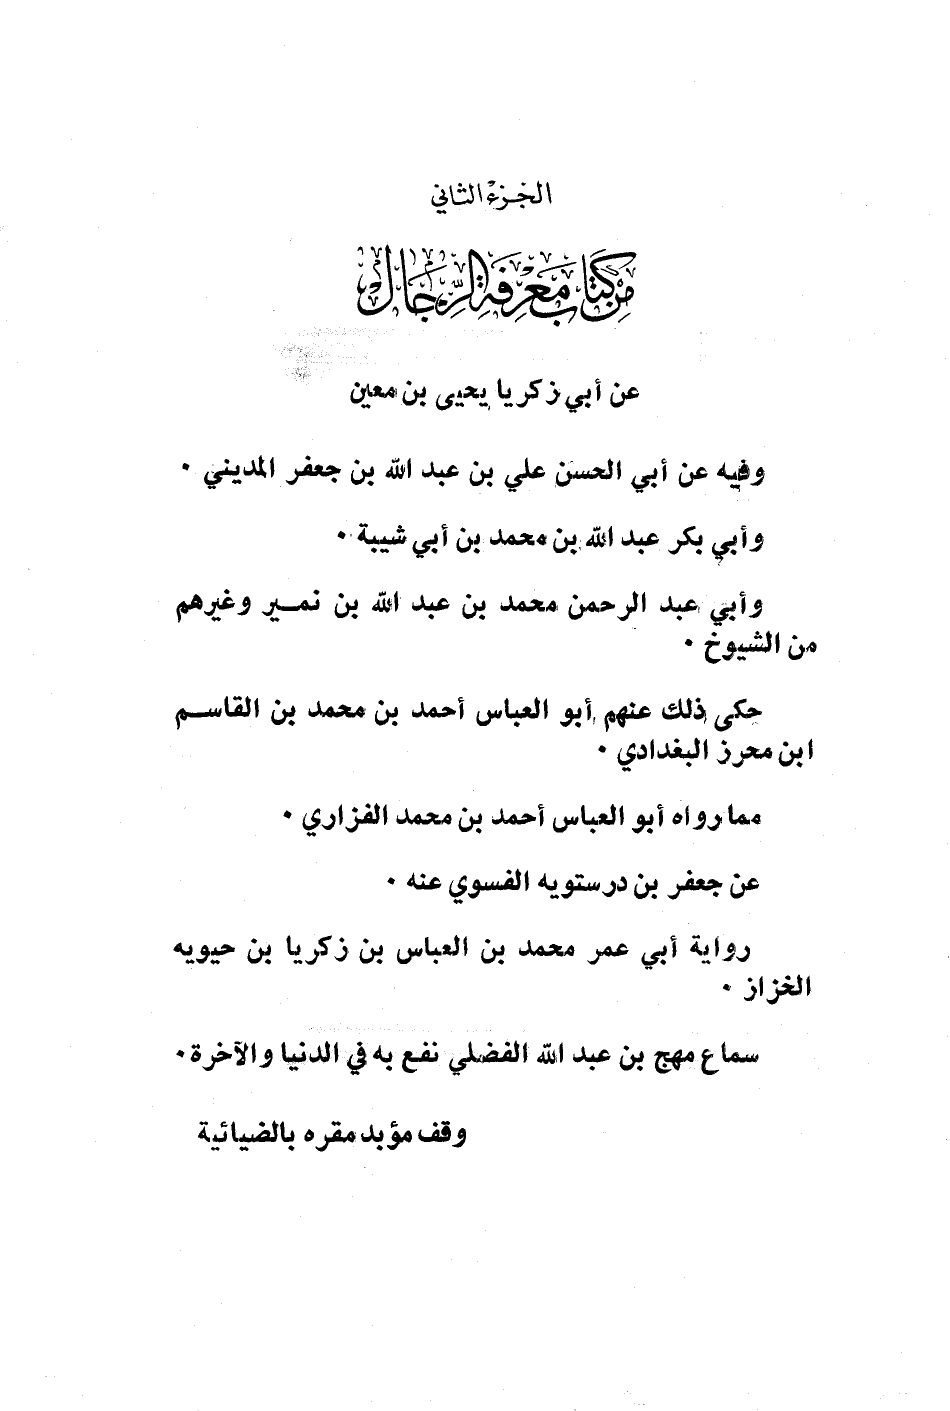 الجزء الثاني
من كتاب معرفة الرجال
عن أبي زكريا يحيى بن معين
وفيه عن أبي الحسن علي بن عبد الله بن جعفر المديني .
وأبي بكر عبد الله بن محمد بن أبي شيبة .
وأبي عبد الرحمن محمد بن عبد الله بن نمــير وغيرهم
من الشيوخ .
حكى ذلك عنهم أبو العباس أحمد بن محمد بن القاســم
ابن محرز البغدادي .
مما رواه أبو العباس أحمد بن محمد الفزاري .
عن جعفر بن درستويه الفسوي عنه .
رواية أبي عمر محمد بن العباس بن زكريا بن حيويه
الخزاز .
سماع مهج بن عبد الله الفضلي نفع به في الدنيا والآخرة .
وقف مؤبد مقره بالضيائية